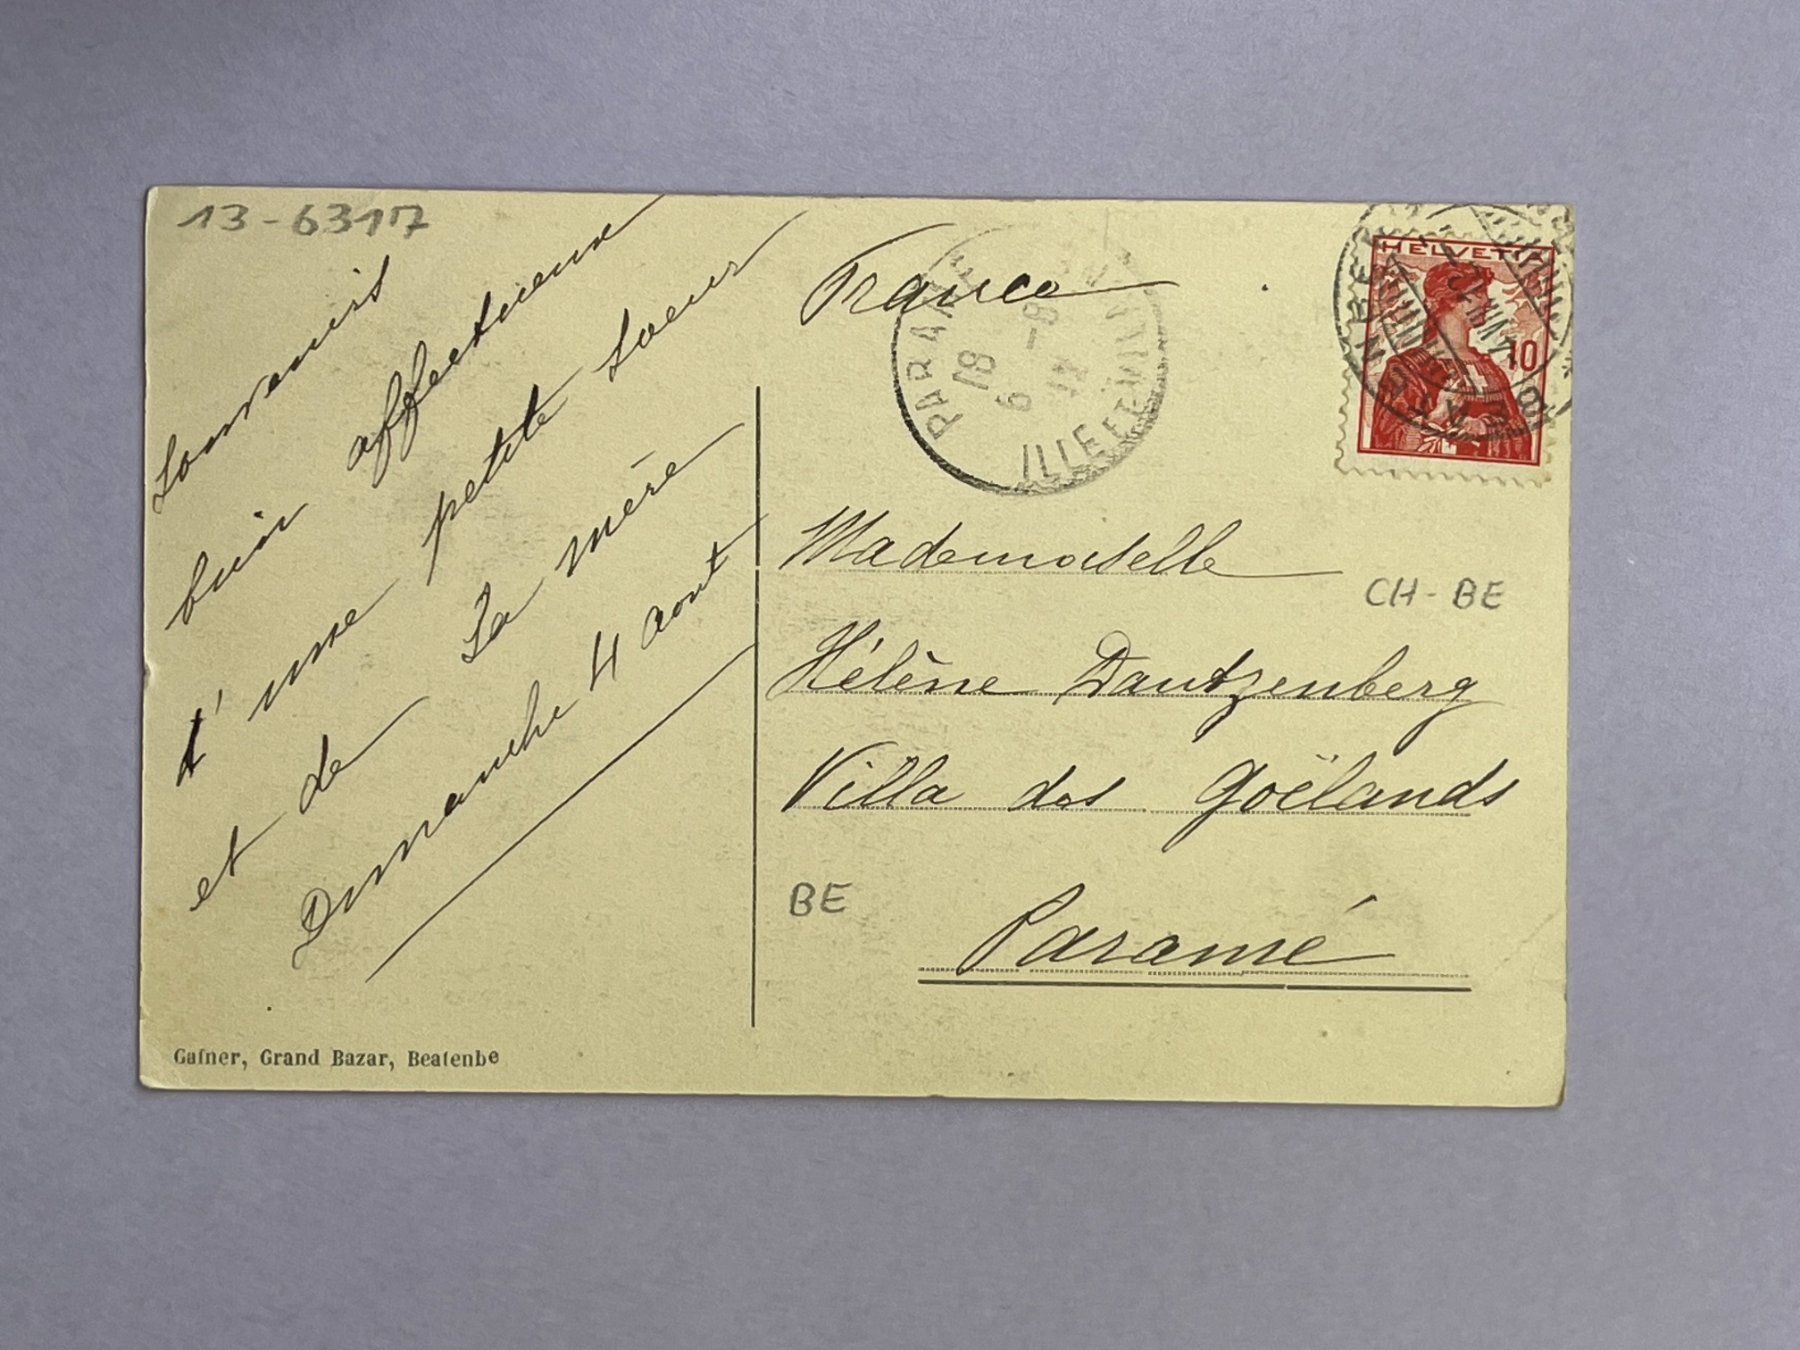 13-6317
Souvenirs
bien affectueux
d'une petite Soeur
et de Sa mère
Dimanche 4 août
Gafner, Grand Bazar, Beatenbe
France
PARAMÉ
18 -8
6 12
ILLE ET VILAINE
HELVETIA
10
Mademoiselle
CH-BE
Hélène Dautzenberg
Villa des Goëlands
BE
Paramé